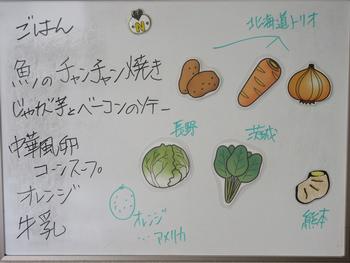 ごはん
魚のチャンチャン焼き
じゃが芋とベーコンのソテー
中華風卵
コーンスープ
オレンジ
牛乳
北海道トリオ
長野
茨城
オレンジ
…アメリカ
熊本
N